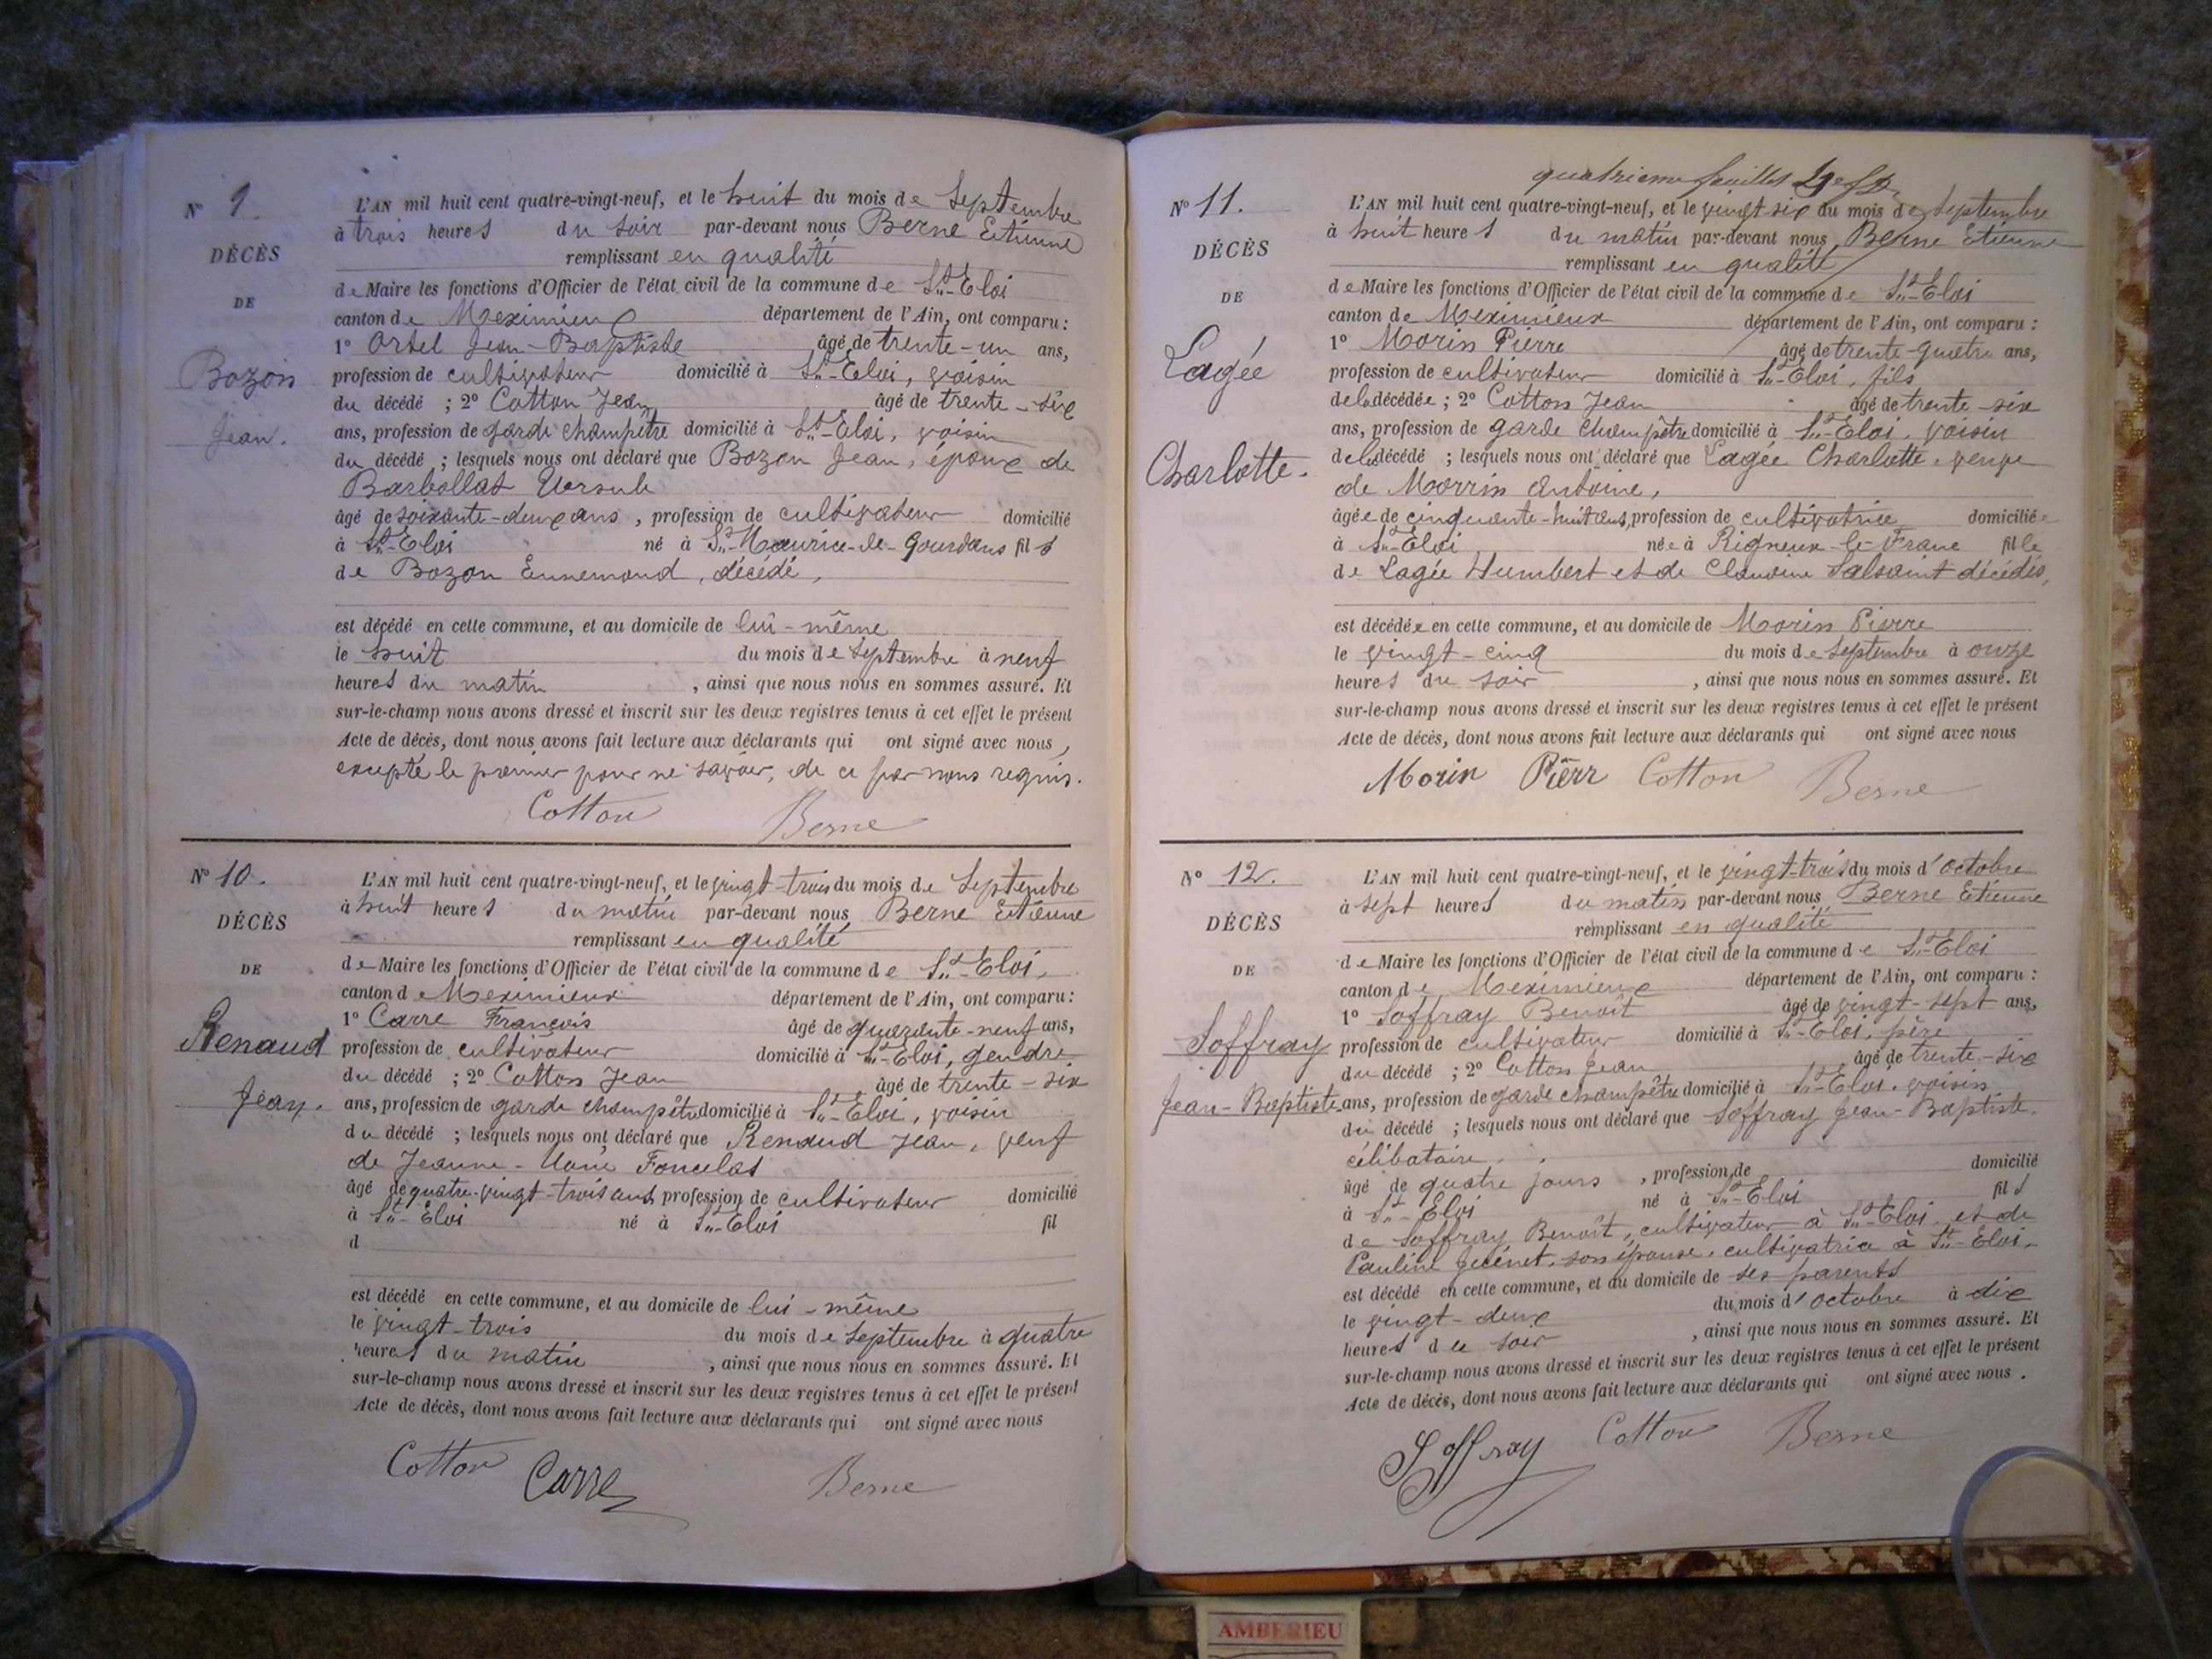 N° 9.
DÉCÈS
DE
Bozon
Jean.
L'AN mil huit cent quatre-vingt-neuf, et le huit du mois de Septembre
à trois heures du soir par-devant nous Berne Etienne
remplissant en qualité
de Maire les fonctions d'Officier de l'état civil de la commune de St-Eloi
canton de Meximieux département de l'Ain, ont comparu :
1° Ortel Jean-Baptiste âgé de trente-un ans,
profession de cultivateur domicilié à St-Eloi, voisin
du décédé ; 2° Cotton Jean âgé de trente-six
ans, profession de garde champêtre domicilié à St-Eloi, voisin
du décédé ; lesquels nous ont déclaré que Bozon Jean, époux de
Barbollat Ursule
âgé de soixante-deux ans, profession de cultivateur domicilié
à St-Eloi né à St-Maurice-de-Gourdans fils
de Bozon Ennemond, décédé,
est décédé en cette commune, et au domicile de lui-même
le huit du mois de Septembre à neuf
heures du matin, ainsi que nous nous en sommes assuré. Et
sur-le-champ nous avons dressé et inscrit sur les deux registres tenus à cet effet le présent
Acte de décès, dont nous avons fait lecture aux déclarants qui ont signé avec nous,
excepté le premier pour ne savoir, de ce par nous requis.
Cotton Berne
N° 10.
DÉCÈS
DE
Renaud
Jean.
L'AN mil huit cent quatre-vingt-neuf, et le vingt-trois du mois de Septembre
à huit heures du matin par-devant nous Berne Etienne
remplissant en qualité
de Maire les fonctions d'Officier de l'état civil de la commune de St-Eloi,
canton de Meximieux département de l'Ain, ont comparu :
1° Carre François âgé de quarante-neuf ans,
profession de cultivateur domicilié à St-Eloi, gendre
du décédé ; 2° Cotton Jean âgé de trente-six
ans, profession de garde champêtre domicilié à St-Eloi, voisin
du décédé ; lesquels nous ont déclaré que Renaud Jean, veuf
de Jeanne-Marie
âgé de quatre-vingt-trois ans, profession de cultivateur domicilié
à St-Eloi né à St-Eloi fil
d
est décédé en cette commune, et au domicile de lui-même
le vingt-trois du mois de Septembre à quatre
heures du matin, ainsi que nous nous en sommes assuré. Et
sur-le-champ nous avons dressé et inscrit sur les deux registres tenus à cet effet le présent
Acte de décès, dont nous avons fait lecture aux déclarants qui ont signé avec nous
Cotton Carre Berne
quatrième feuillet
N° 11.
DÉCÈS
DE
Lagée
Charlotte.
L'AN mil huit cent quatre-vingt-neuf, et le vingt six du mois de Septembre
à huit heures du matin par-devant nous Berne Etienne
remplissant en qualité
de Maire les fonctions d'Officier de l'état civil de la commune de St-Eloi
canton de Meximieux département de l'Ain, ont comparu :
1° Morin Pierre âgé de trente-quatre ans,
profession de cultivateur domicilié à St-Eloi, fils
de la décédée ; 2° Cotton Jean âgé de trente-six
ans, profession de garde champêtre domicilié à St-Eloi, voisin
de la décédé ; lesquels nous ont déclaré que Lagée Charlotte, veuve
de Morrin Antoine,
âgée de cinquante-huit ans, profession de cultivatrice domiciliée
à St-Eloi née à Rigneux-le-Franc fille
de Lagée Humbert et de Claudine Salsaint décédés,
est décédée en cette commune, et au domicile de Morin Pierre
le vingt-cinq du mois de Septembre à onze
heures du soir, ainsi que nous nous en sommes assuré. Et
sur-le-champ nous avons dressé et inscrit sur les deux registres tenus à cet effet le présent
Acte de décès, dont nous avons fait lecture aux déclarants qui ont signé avec nous
Morin Pièrr Cotton Berne
N° 12.
DÉCÈS
DE
Soffray
Jean-Baptiste
L'AN mil huit cent quatre-vingt-neuf, et le vingt-trois du mois d'octobre
à sept heures du matin par-devant nous Berne Etienne
remplissant en qualité
de Maire les fonctions d'Officier de l'état civil de la commune de St-Eloi
canton de Meximieux département de l'Ain, ont comparu :
1° Soffray Benoît âgé de vingt-sept ans,
profession de cultivateur domicilié à St-Eloi, père
du décédé ; 2° Cotton Jean âgé de trente-six
ans, profession de garde champêtre domicilié à St-Eloi, voisin
du décédé ; lesquels nous ont déclaré que Soffray Jean-Baptiste,
célibataire,
âgé de quatre jours, profession de domicilié
à St-Eloi né à St-Eloi fils
de Soffray Benoît, cultivateur à St-Eloi, et de
Pauline son épouse, cultivatrice à St-Eloi,
est décédé en cette commune, et au domicile de ses parents
le vingt-deux du mois d'octobre à dix
heures du soir, ainsi que nous nous en sommes assuré. Et
sur-le-champ nous avons dressé et inscrit sur les deux registres tenus à cet effet le présent
Acte de décès, dont nous avons fait lecture aux déclarants qui ont signé avec nous.
Soffray Cotton Berne
AMBERIEU